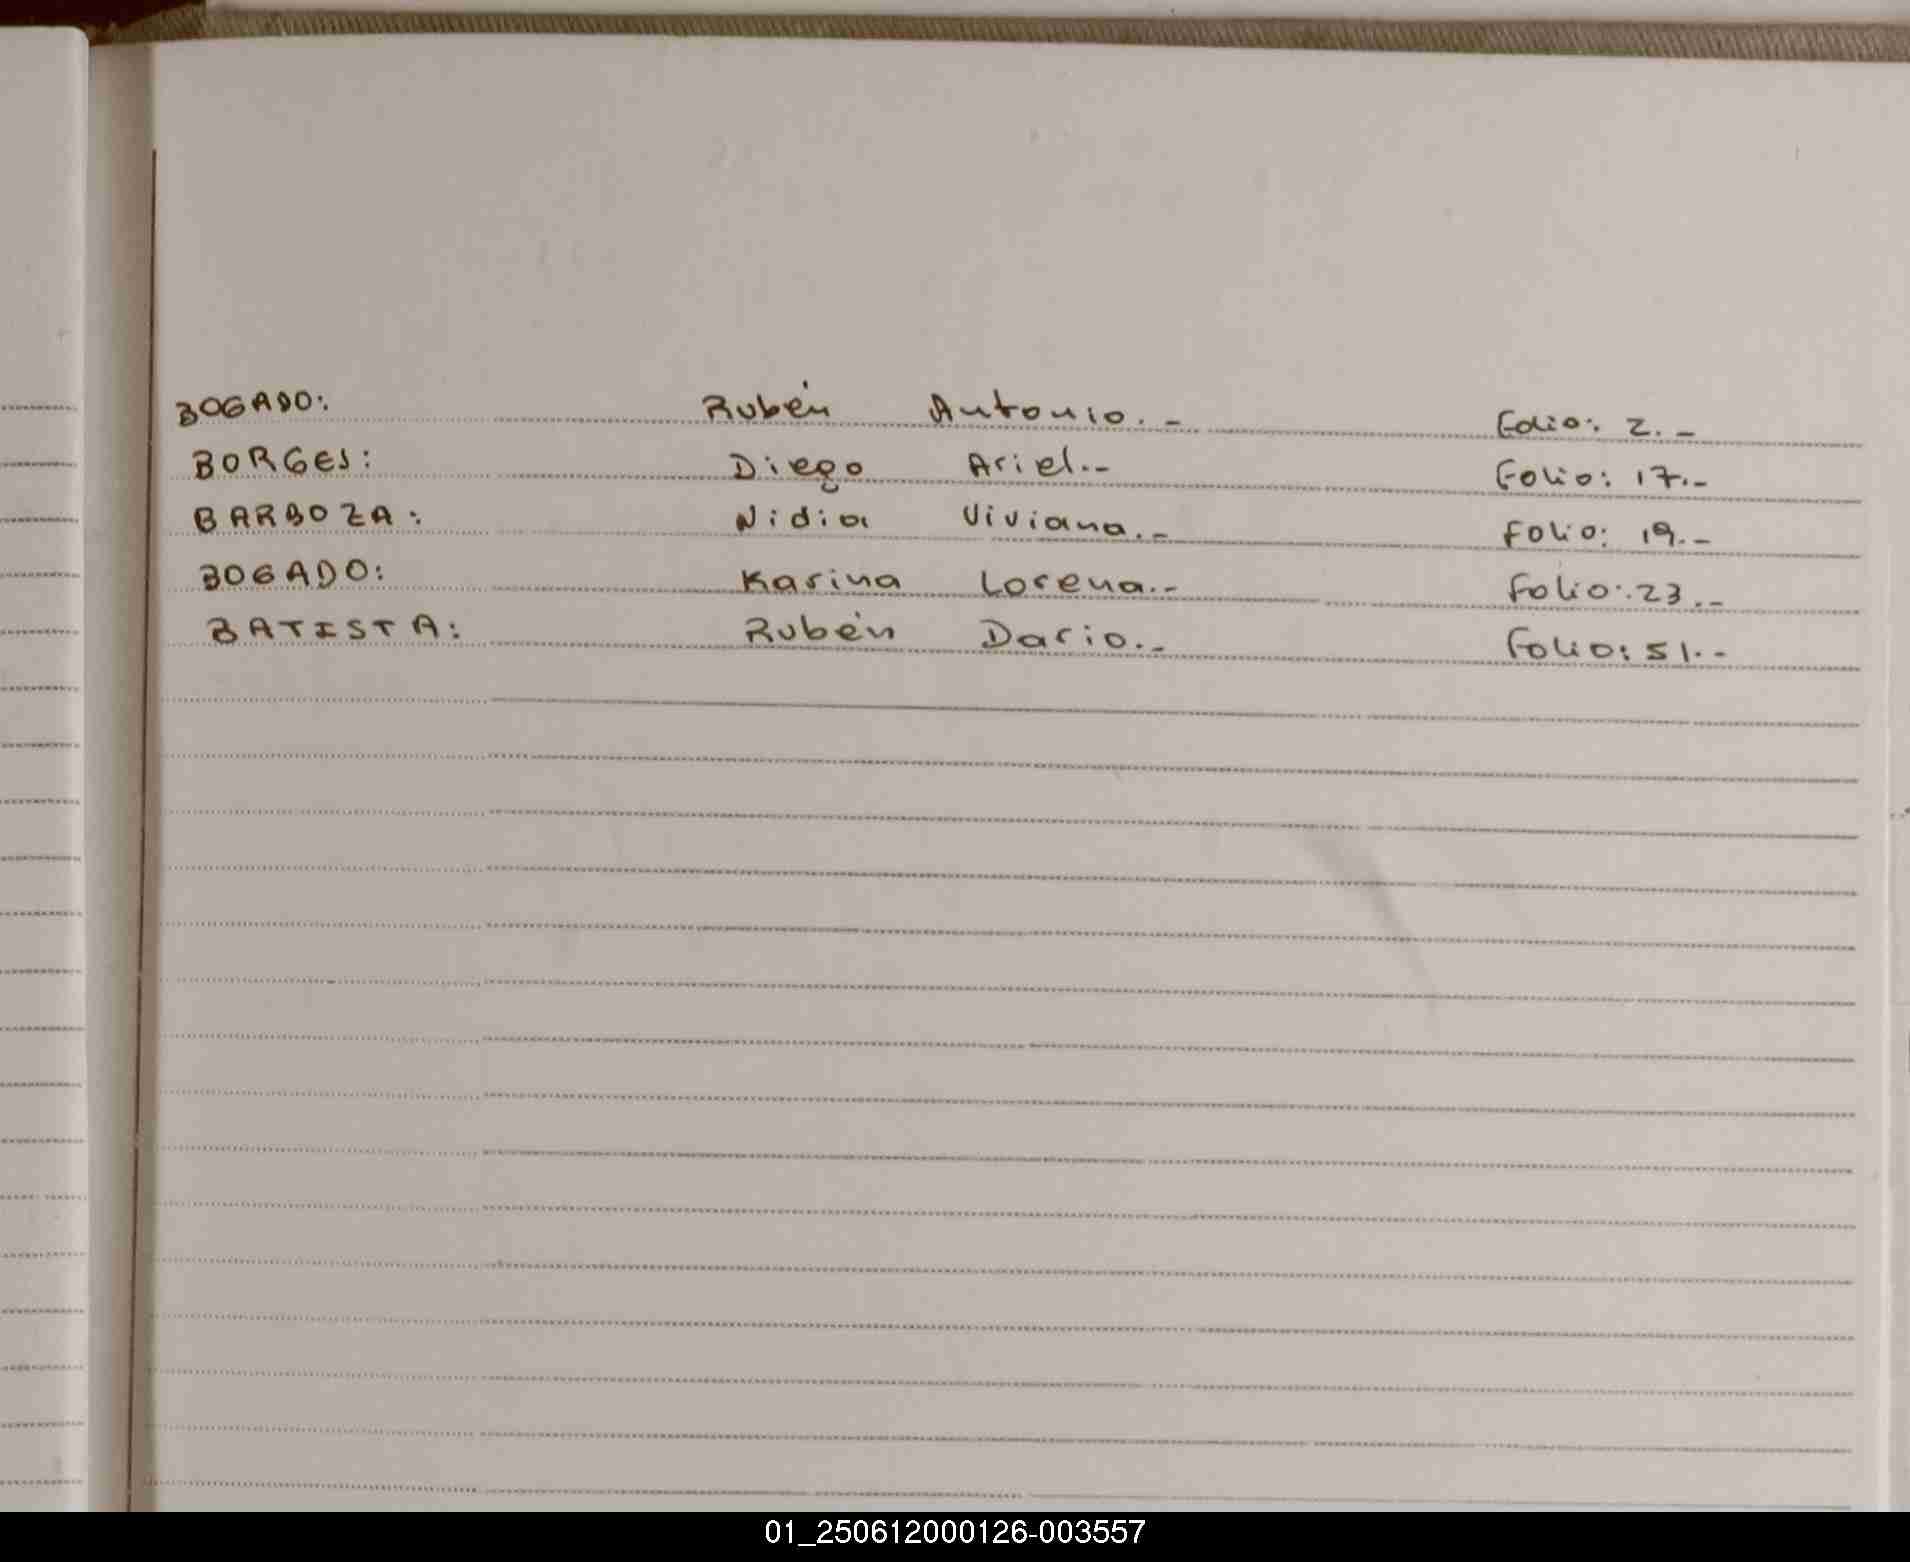 BOGADO: Rubén Antonio.- Folio: 2.-
BORGES: Diego Ariel.- Folio: 17.-
BARBOZA: Nidia Viviana.- Folio: 19.-
BOGADO: Karina Lorena.- Folio: 23.-
BATISTA: Rubén Dario.- Folio: 51.-
01_250612000126-003557